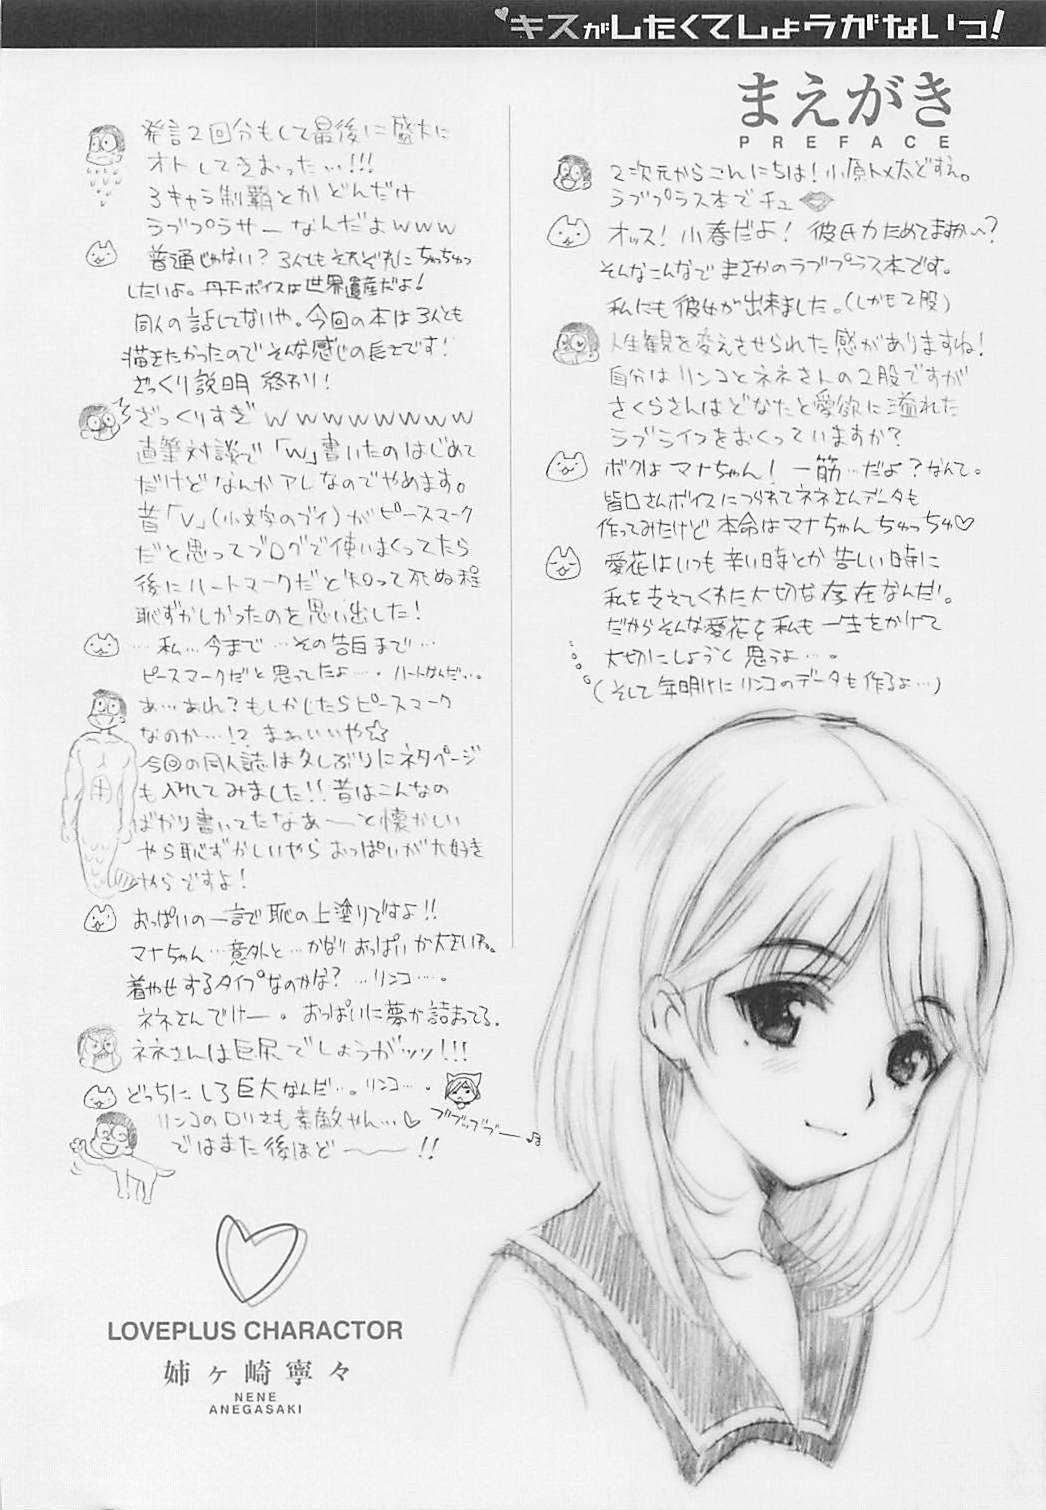 キスがしたくてしょうがないっ!
まえがき
PREFACE
2次元からこんにちは!小原トメ太どすえ。
ラブプラス本でチュ
オッス!小春だよ!彼氏力ためてますか〜?
そんなこんなでまさかのラブプラス本です。
私にも彼女が出来ました。(しかも2股)
人生観を変えさせられた感がありますね!
自分はリンコとネネさんの2股ですが
さくらさんはどなたと愛欲に溢れた
ラブライフをおくっていますか?
ボクはマナちゃん!一筋…だよ?なんて。
皆口さんボイスにつられてネネさんデータも
作ってみたけど本命はマナちゃんちゅっちゅ♡
愛花はいつも辛い時とか苦しい時に
私を支えてくれた大切な存在なんだ。
だからそんな愛花を私も一生をかけて
大切にしようと思うよ…。
(そして年明けにリンコのデータも作るよ…)
発言2回分もして最後に盛大に
オトしてきおった…!!!
3キャラ制覇とかどんだけ
ラブプラサーなんだよwww
普通じゃない?3人ともそれぞれにちゅっちゅっ
したいよ。丹下ボイスは世界遺産だよ!
同人の話してないや。今回の本は3人とも
描きたかったのでそんな感じの長さです!
ざっくり説明終わり!
ざっくりすぎwwwwwwww
直筆対談で「w」書いたのはじめて
だけどなんかアレなのでやめます。
昔「v」(小文字のブイ)がピースマーク
だと思ってブログで使いまくってたら
後にハートマークだと知って死ぬ程
恥ずかしかったのを思い出した!
…私…今まで…その告白まで…
ピースマークだと思ってたよ…。ハートなんだ…。
あ…あれ?もしかしたらピースマーク
なのか…!?まぁいいや☆
今回の同人誌は久しぶりにネタページ
も入れてみました!!昔はこんなの
ばかり書いてたなあーと懐かしい
やら恥ずかしいやらおっぱいが大好き
やらですよ!
おっぱいの一言で恥の上塗りですよ!!
マナちゃん…意外と…かなりおっぱいが大きいネ。
着やせするタイプなのかな?…リンコ…。
ネネさんでけー。おっぱいに夢が詰まってる。
ネネさんは巨尻でしょうがッッ!!!
どっちにしろ巨大なんだ…。リンコ…。
ブブッブブー♪
リンコのロリさも素敵やん…♡
ではまた後ほど〜!!
LOVEPLUS CHARACTOR
姉ヶ崎寧々
NENE
ANEGASAKI